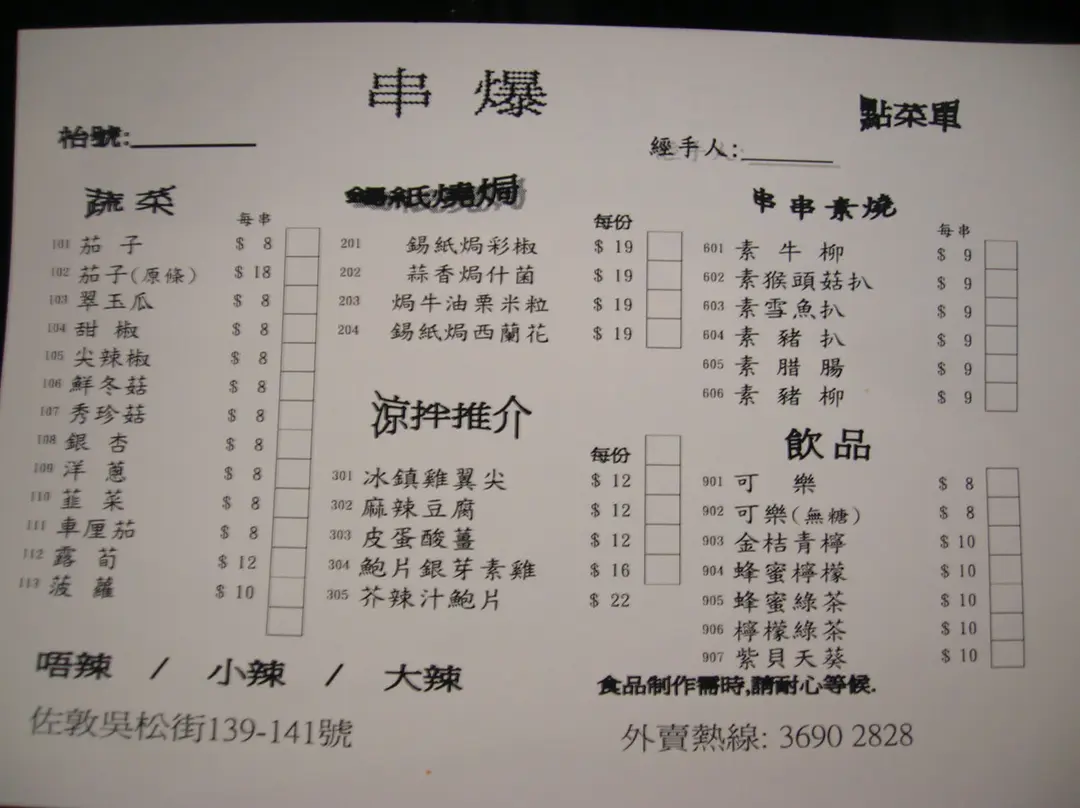 串爆
點菜單
枱號:
經手人:
蔬菜
每串
101 茄子 $ 8
102 茄子(原條) $ 18
103 翠玉瓜 $ 8
104 甜椒 $ 8
105 尖辣椒 $ 8
106 鮮冬菇 $ 8
107 秀珍菇 $ 8
108 銀杏 $ 8
109 洋蔥 $ 8
110 韮菜 $ 8
111 車厘茄 $ 8
112 露荀 $ 12
113 菠蘿 $ 10
錫紙燒焗
每份
201 錫紙焗彩椒 $ 19
202 蒜香焗什菌 $ 19
203 焗牛油粟米粒 $ 19
204 錫紙焗西蘭花 $ 19
涼拌推介
每份
301 冰鎮雞翼尖 $ 12
302 麻辣豆腐 $ 12
303 皮蛋酸薑 $ 12
304 鮑片銀芽素雞 $ 16
305 芥辣汁鮑片 $ 22
串串素燒
每串
601 素牛柳 $ 9
602 素猴頭菇扒 $ 9
603 素雪魚扒 $ 9
604 素豬扒 $ 9
605 素腊腸 $ 9
606 素豬柳 $ 9
飲品
901 可樂 $ 8
902 可樂(無糖) $ 8
903 金桔青檸 $ 10
904 蜂蜜檸檬 $ 10
905 蜂蜜綠茶 $ 10
906 檸檬綠茶 $ 10
907 紫貝天葵 $ 10
唔辣 / 小辣 / 大辣
食品制作需時,請耐心等候.
佐敦吳松街139-141號
外賣熱線: 3690 2828